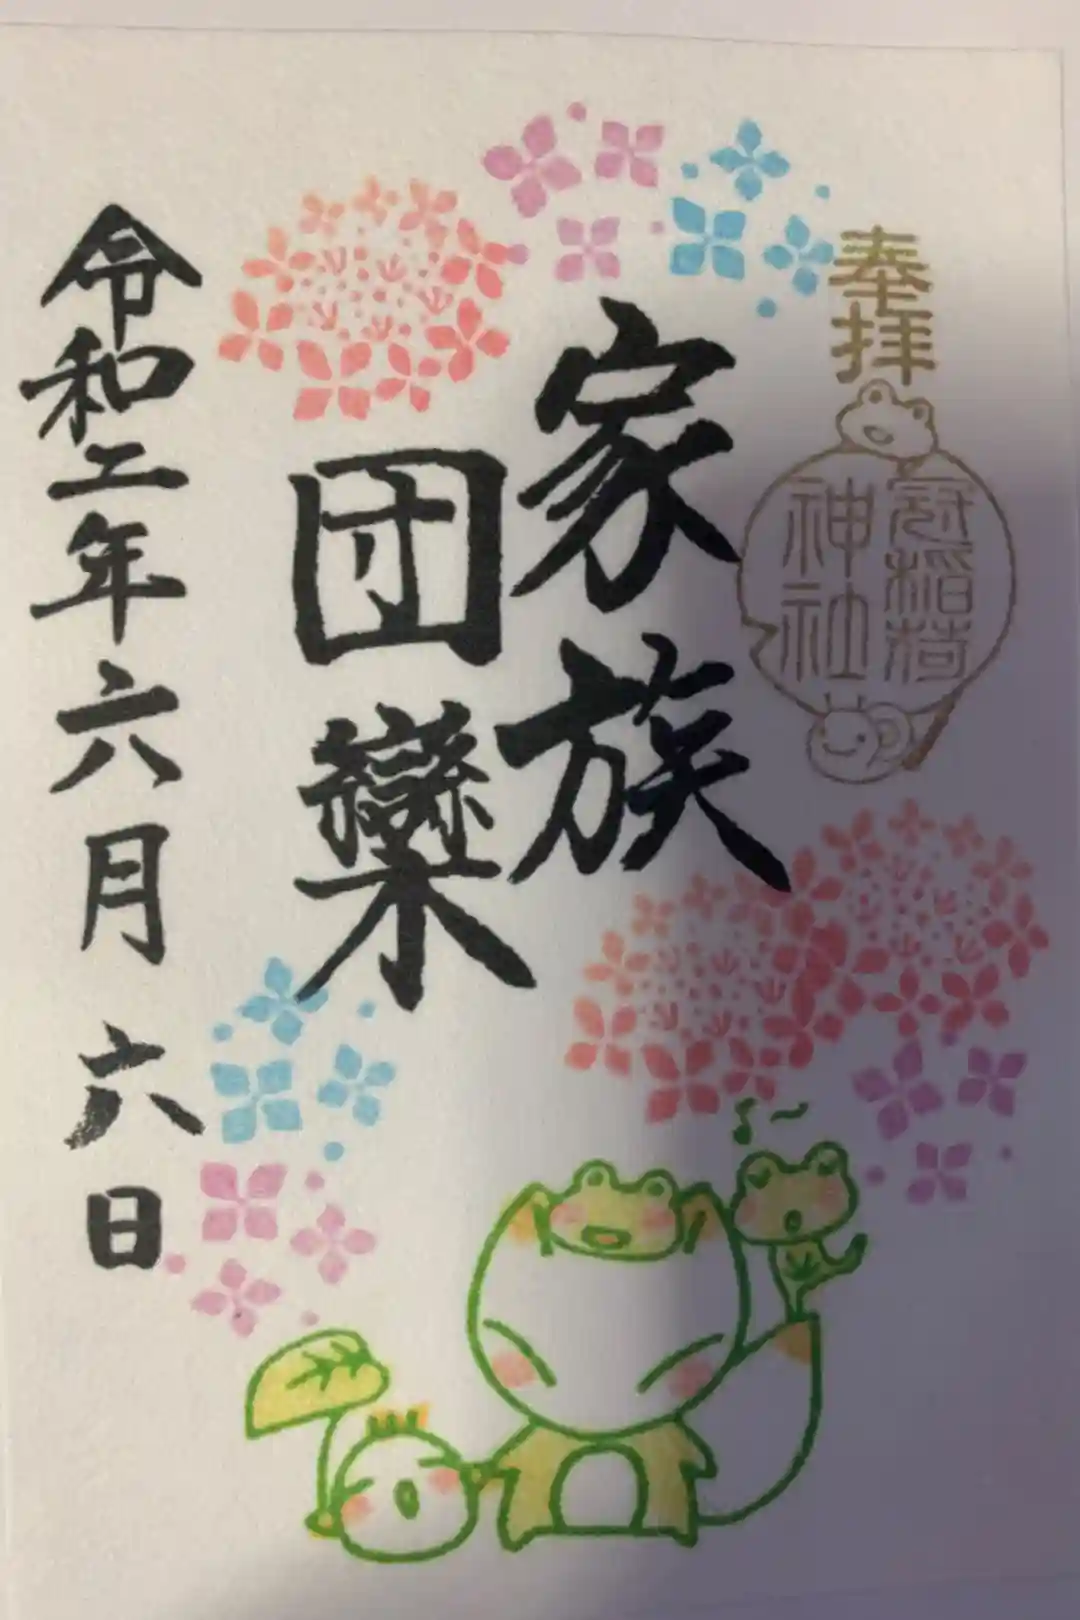 奉拝
冠稲荷
神社
家族
団欒
令和二年六月六日